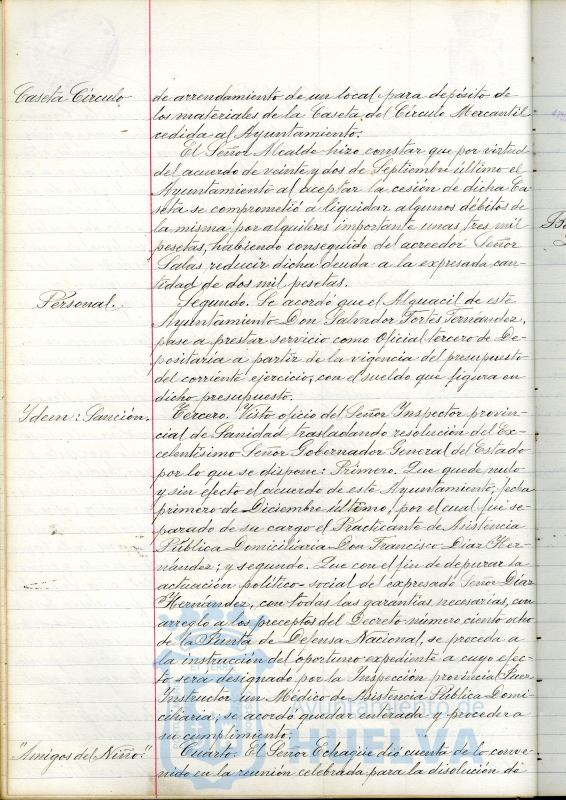 Caseta Círculo
de arrendamiento de un local para depósito de
los materiales de la Caseta del Círculo Mercantil
cedida al Ayuntamiento.
El Señor Alcalde hizo constar que por virtud
del acuerdo de veinte y dos de Septiembre último el
Ayuntamiento al aceptar la cesión de dicha Ca-
seta se comprometió a liquidar algunos débitos de
la misma por alquileres importante unas tres mil
pesetas, habiendo conseguido del acreedor Señor
Salas reducir dicha deuda a la expresada can-
tidad de dos mil pesetas.
Personal.
Segundo. Se acordó que el Alguacil de este
Ayuntamiento Don Salvador Fortes Fernandez,
pase a prestar servicio como Oficial tercero de De-
positaría a partir de la vigencia del presupuesto
del corriente ejercicio, con el sueldo que figura en
dicho presupuesto.
Ydem: Sanción.
Tercero. Visto oficio del Señor Inspector provin-
cial de Sanidad trasladando resolución del Ex-
celentísimo Señor Gobernador General del Estado
por lo que se dispone: Primero. Que quede nulo
y sin efecto el acuerdo de este Ayuntamiento, fecha
primero de Diciembre último, por el cual fue se-
parado de su cargo el Practicante de Asistencia
Pública Domiciliaria Don Francisco Diaz Her-
nández; y segundo. Que con el fin de depurar la
actuación político-social del expresado Señor Diaz
Hernández, con todas las garantias necesarias, con
arreglo a los preceptos del Decreto número ciento ocho
de la Junta de Defensa Nacional, se proceda a
la instrucción del oportuno expediente a cuyo efec-
to será designado por la Inspección provincial Juez
Instructor un Médico de Asistencia Pública Domi-
ciliaria; se acordó quedar enterada y proceder a
su cumplimiento.
"Amigos del Niño."
Cuarto. El Señor Echague dió cuenta de lo conve-
nido en la reunión celebrada para la disolución de
Ayuntamiento de
HUELVA